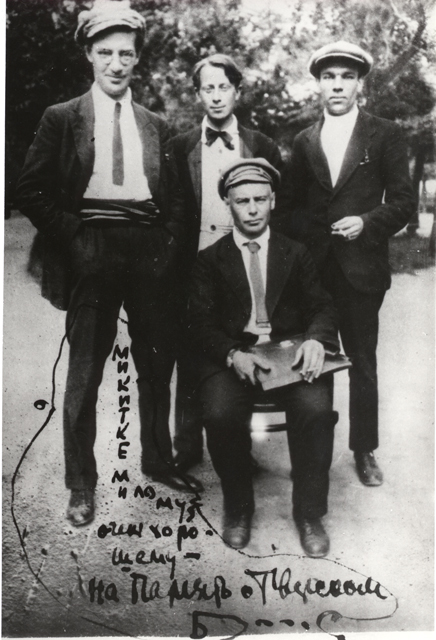 МИКИТКЕ
МИЛОМУ
очен хоро-
шему-
на Память о Тверском